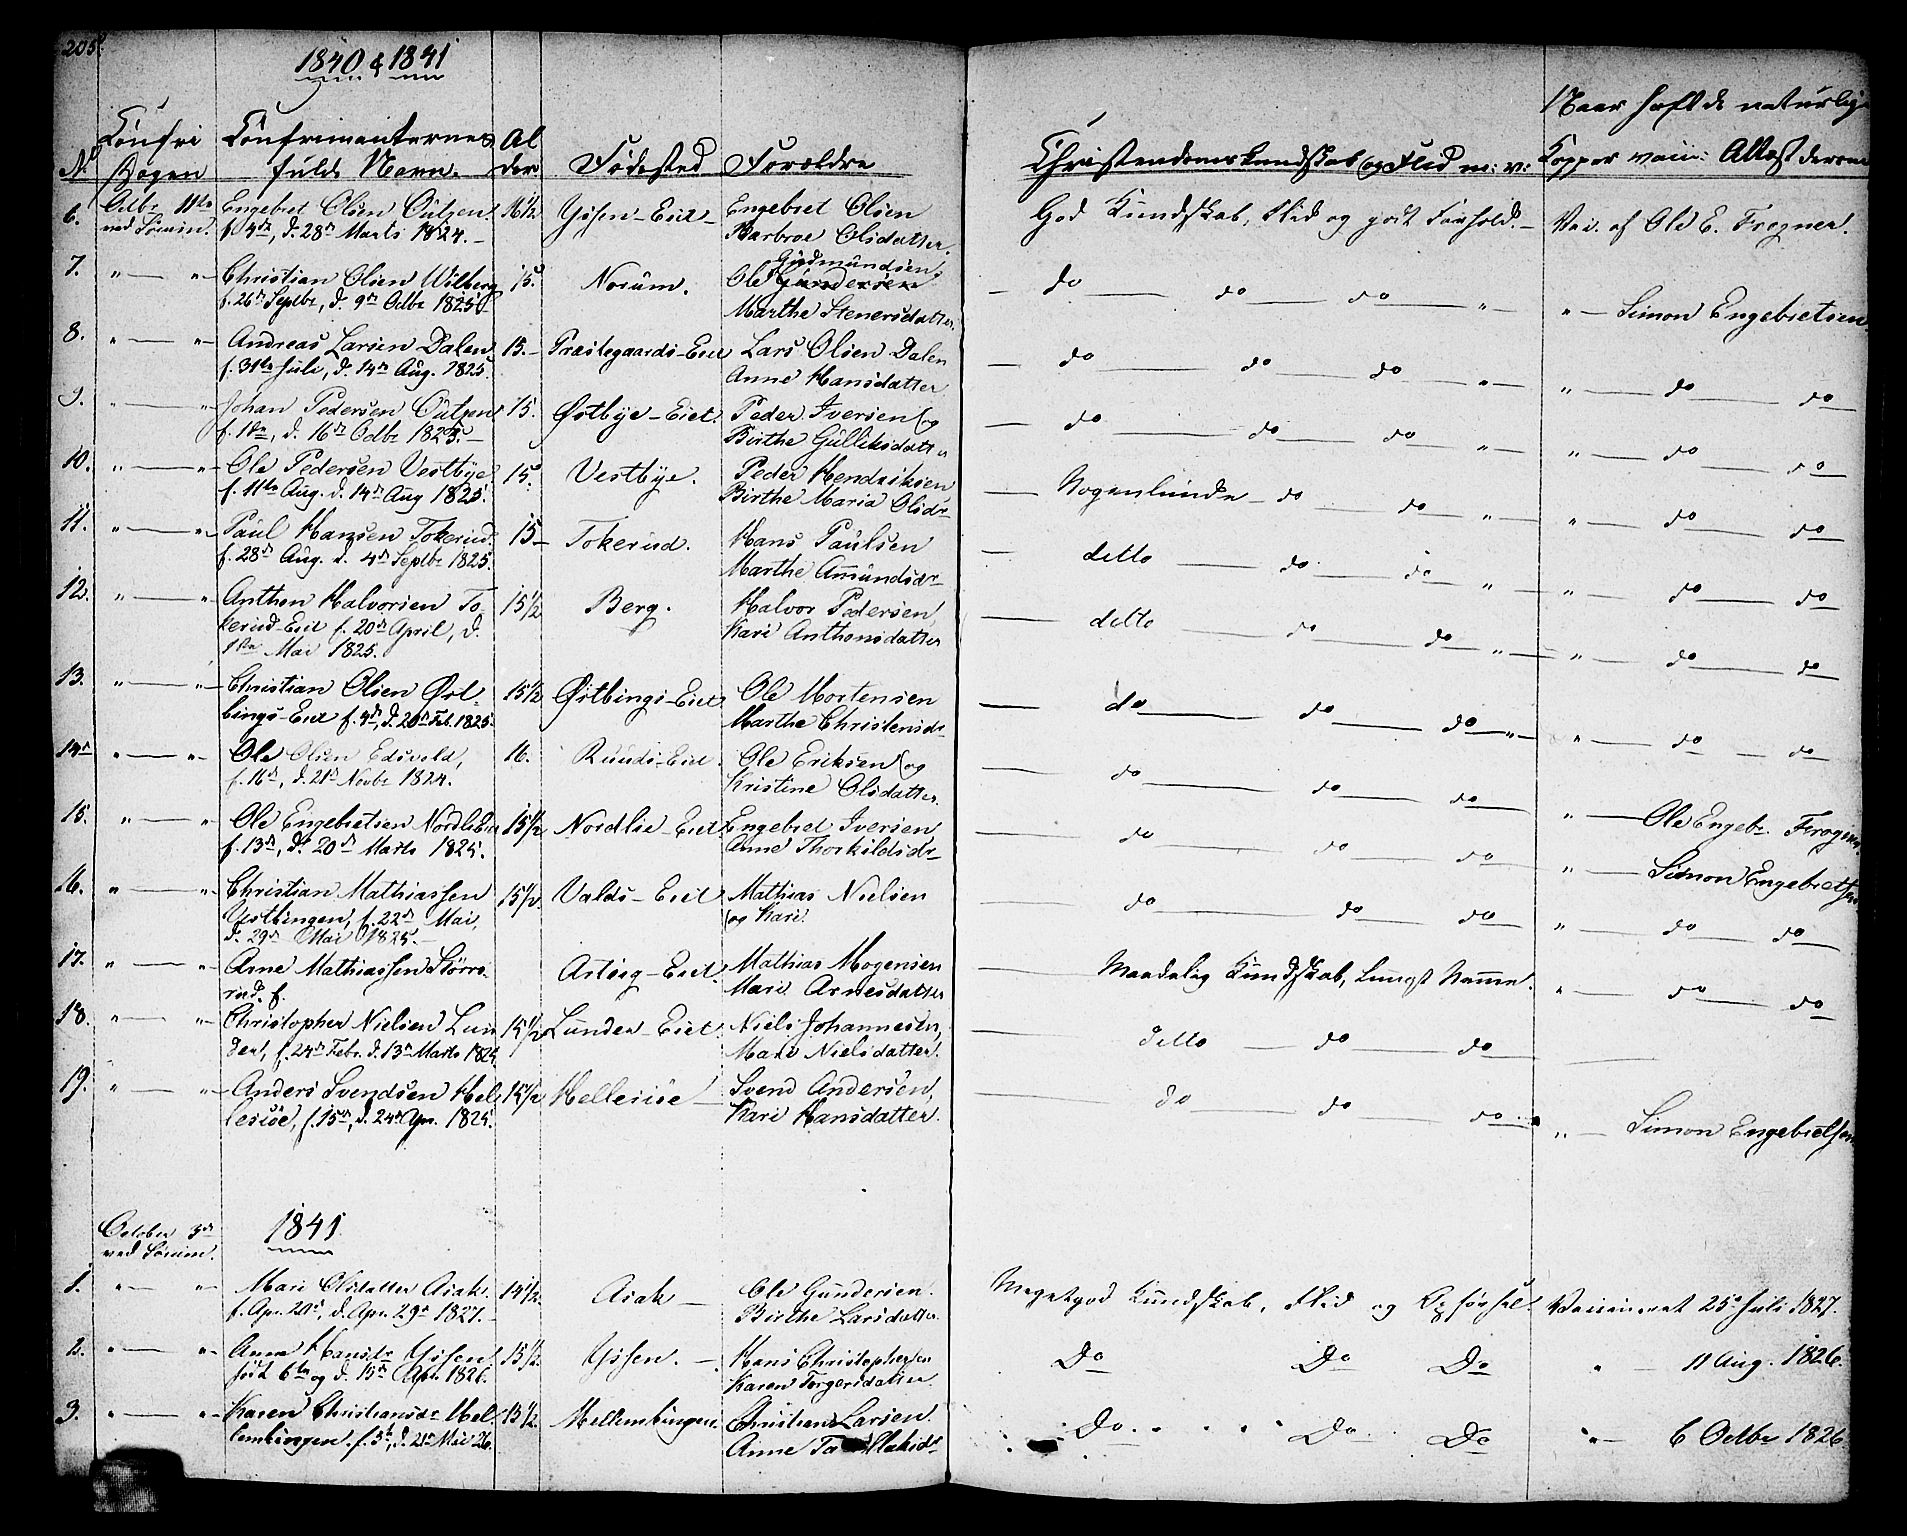 205
1840 & 1841
No
Confir
Dagen
Confirmanternes
fulde Navn.
Al
der
Fødested
Forældre
Christendomskundskab og Flid m: v:
Naar haft de naturlige
Kopper vacci: Attest derom
6. Octbr 11te Engebret Olsen 16 1/2 Yssen-Eiet Engebret Olsen God Kundskab, Flid og godt Forhold. Vac. af Ole E. Frogner.
ved Sørum. f. 4de, d. 28de Marts 1824. Barbroe Olsdatter
7. " — " Christian Olsen Wilberg 15. Norum. Ole Gundersen Gudmundsen, — do — do — do — " " — Simon Engebretsen
f. 26de Septbr, d. 9de Octbr 1825. Marthe Stenersdatter
8. " — " Andreas Larsen Dalen 15. Præstegaards-Eiet Lars Olsen Dalen — do — do — do — " " — do — do
f. 31te Juli, d. 14de Aug. 1825. Anne Hansdatter
9. " — " Johan Pedersen 15. Østbye-Eiet. Peder Iversen og — do — do — do — " " — do — do
f. 1ste, d. 16de Octbr 1825. Birthe Gulliksdatter
10. " — " Ole Pedersen Vestbye 15. Vestbye. Peder Hendriksen — Nogenlunde — do — do — " " — do — do
f. 11te Aug. d. 14de Aug 1825. Birthe Maria Olsdr
11. " — " Paul Hansen Tokerud. 15 Tokerud. Hans Paulsen — ditto — do — do " " — do — do
f. 28de Aug. d. 4de Septbr 1825. Marthe Amundsdr
12. " — " Anthon Halvorsen To- 15 1/2 Berg. Halvor Pedersen, — ditto — do — do — " " — do — do
kerud-Eiet f. 20de April, d. Kari Anthonsdatter
1ste Mai 1825.
13. " — " Christian Olsen Øst- 15 1/2 Østbings-Eiet Ole Mortensen — do — do — do " " — do — do
bings-Eiet f. 4de, d. 20de Feb. 1825. Marthe Christensdr
14. " — " Ole Olsen Edsvold, 16. Ruuds-Eiet. Ole Eriksen og — do — do — do " — Ole Engebr. Frogner.
f. 16de, d. 21de Novbr 1824. Kristine Olsdatter.
15. " — " Ole Engebretsen Nordli Eiet 15 1/2 Nordlie-Eiet Engebret Iversen — do — do — do " — Simon Engebretsen
f. 13de, d. 20de Marts 1825. Anne Thorkildsdr
16. " — " Christian Mathiassen 15 1/2 Valds-Eiet Mathias Nielsen — do — do — do " — do — do
Ystbingen, f. 22de Mai, og Kari
d. 29de Mai 1825.
17. " — " Arne Mathiassen Størrs- Asters-Eiet Mathias Mogensen — Maadelig Kundskab, " — do — do
rud. f. Mari Arnesdatter
18. " — " Christopher Nielsen Lun 15 1/2 Lunder-Eiet Niels Johannesen, — ditto — do — do —
der, f. 24de Febr. d. 13de Marts 1825 Mari Nielsdatter.
19. " — " Anders Svendsen Hel- 15 1/2 Hellesiøe Svend Andersen, — do — do — do " — Simon Engebretsen
lesiøe, f. 15de, d. 24de Apr. 1825. Kari Hansdatter.
October 3de
ved Sørum.
1841
1. " — " Mari Olsdatter Asak 14 1/2. Asak — Ole Gundersen. Meget god Kundskab, Flid og Opførsel. Vaccineret 25de Juli 1827.
f. Apr. 20de, d. Apr. 29de 1827. Birthe Larsdatter.
2. " — " Anne Hansdr Yssen. 15 1/2. Yssen. — Hans Christophersen Do Do Do " — 11 Aug. 1826.
født 6te og d. 15de Apr. 1826. Karen Torgersdatter.
3. " — " Karen Christiansdr Mel- 15 1/2. Mellembingen. Christian Larsen. Do Do Do " — 6 Octbr 1826
lembingen. f. 3de, d. 21de Mai 26. Anne